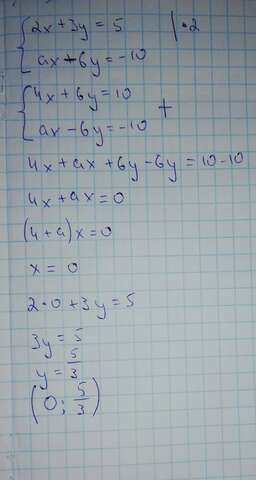 2x + 3y = 5 | • 2
ax - 6y = -10
4x + 6y = 10
ax - 6y = -10 +
4x + ax + 6y - 6y = 10 - 10
4x + ax = 0
(4 + a) x = 0
x = 0
2 • 0 + 3y = 5
3y = 5
y = 5/3
(0; 5/3)